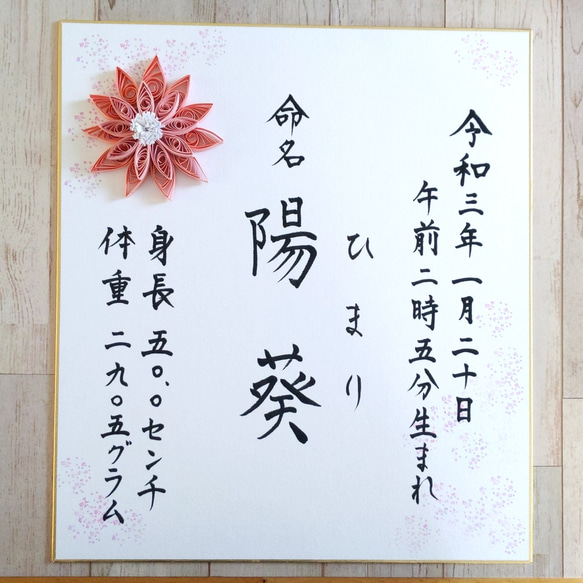 令和三年一月二十日
午前二時五分生まれ
命名
ひまり
陽葵
身長 五〇.〇センチ
体重 二九〇五グラム